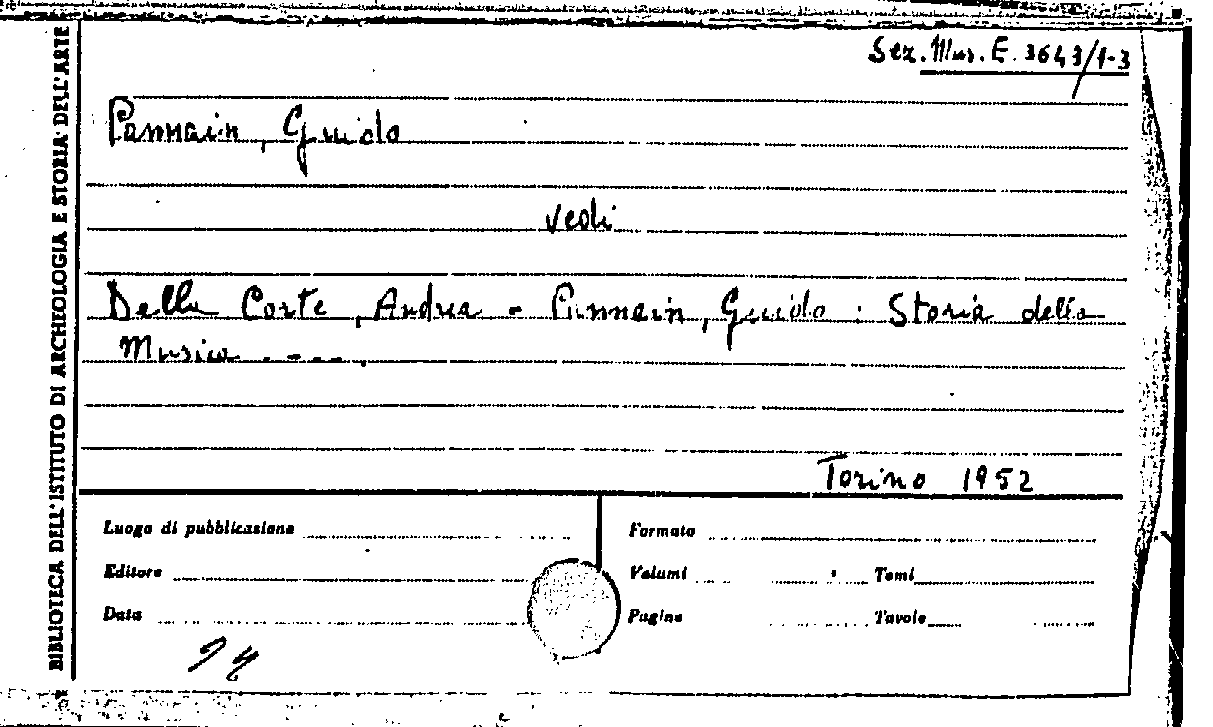 Sez. Mus. E. 3643/1-3
Pannain, Guido
vedi
Della Corte, Andrea - Pannain, Guido : Storia della
Musica . - - - .
Torino 1952
Luogo di pubblicazione
Editore
Data
Formato
Volumi Tomi
Pagine Tavole
BIBLIOTECA DELL'ISTITUTO DI ARCHEOLOGIA E STORIA DELL'ARTE